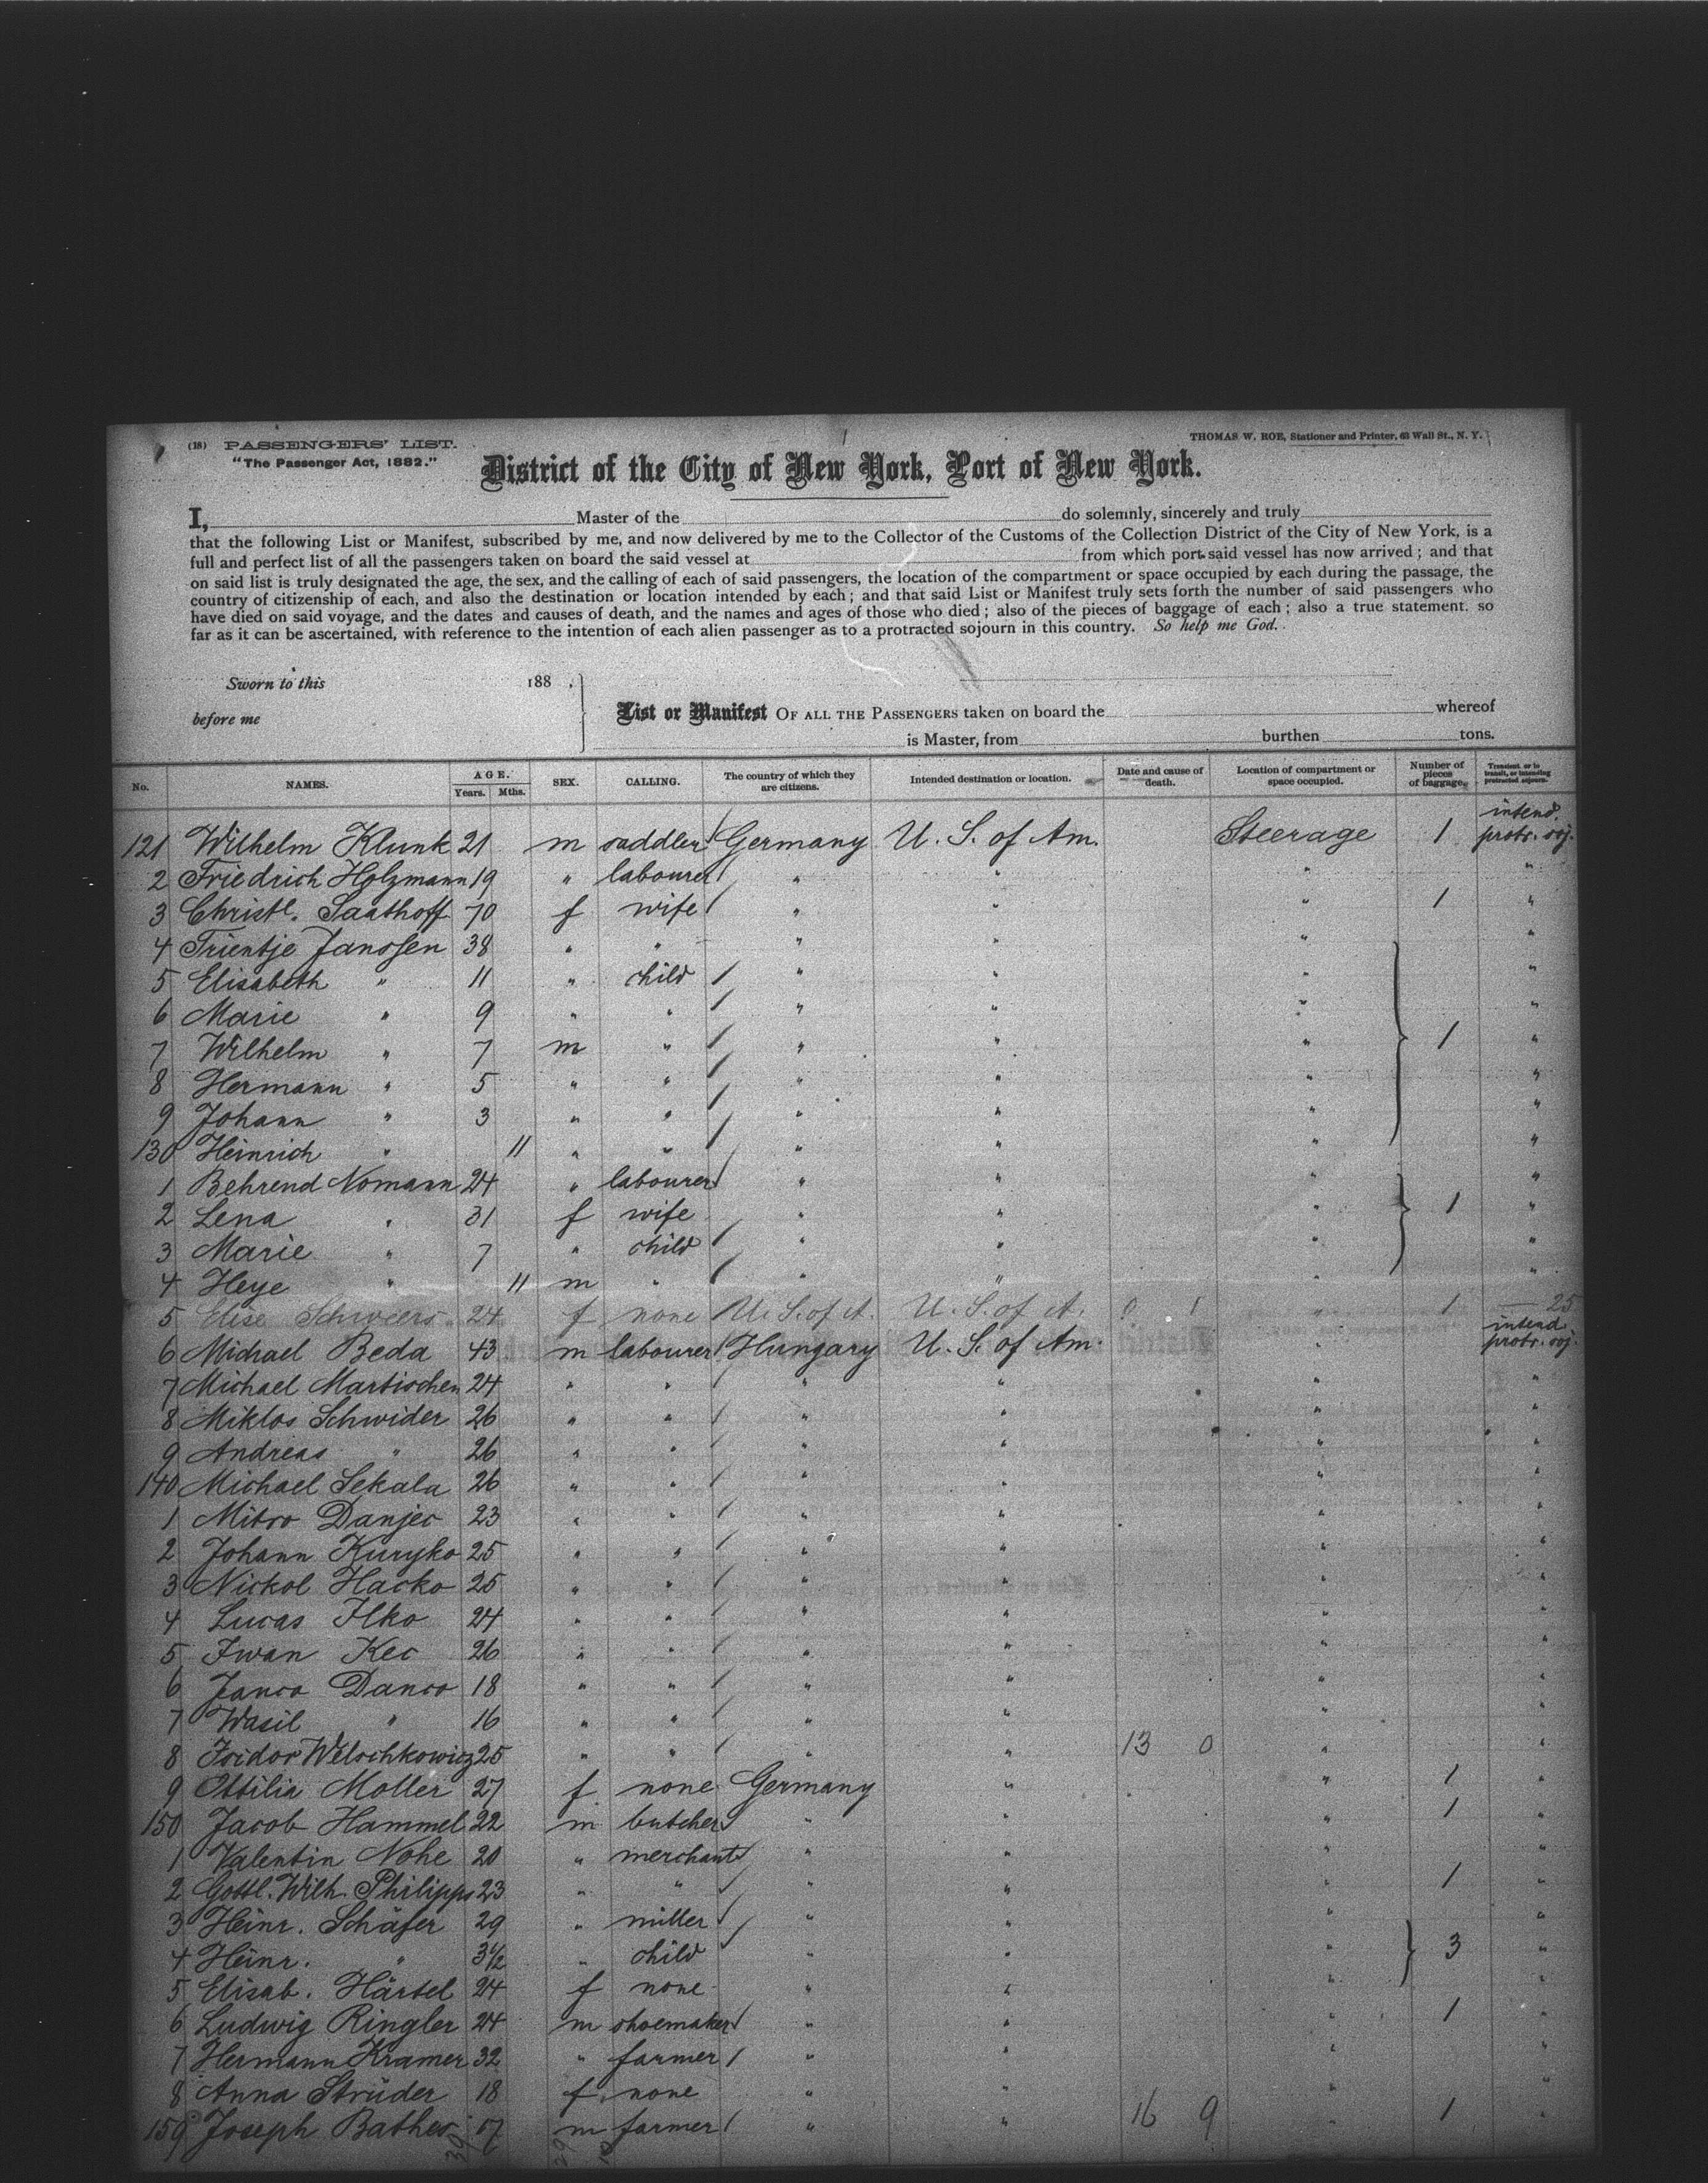 (18) PASSENGERS' LIST. THOMAS W. ROE, Stationer and Printer, 63 Wall St., N. Y.
"The Passenger Act, 1882."
District of the City of New York, Port of New York.
I, Master of the do solemnly, sincerely and truly
that the following List or Manifest, subscribed by me, and now delivered by me to the Collector of the Customs of the Collection District of the City of New York, is a
full and perfect list of all the passengers taken on board the said vessel at from which port said vessel has now arrived; and that
on said list is truly designated the age, the sex, and the calling of each of said passengers, the location of the compartment or space occupied by each during the passage, the
country of citizenship of each, and also the destination or location intended by each; and that said List or Manifest truly sets forth the number of said passengers who
have died on said voyage, and the dates and causes of death, and the names and ages of those who died; also of the pieces of baggage of each; also a true statement, so
far as it can be ascertained, with reference to the intention of each alien passenger as to a protracted sojourn in this country. So help me God.
Sworn to this 188 .
before me
List or Manifest OF ALL THE PASSENGERS taken on board the whereof
is Master, from burthen tons.
No. NAMES. AGE. Years. Mths. SEX. CALLING. The country of which they are citizens. Intended destination or location. Date and cause of death. Location of compartment or space occupied. Number of pieces of baggage. Transient, or in transit, or intending protracted sojourn.
121 Wilhelm Klunk 21 m saddler Germany U. S. of Am. Steerage 1 intend. protr. soj.
2 Friedrich Holzmann 19 " labourer " " " "
3 Christl. Saathoff 70 f wife " " " 1 "
4 Trientje Janssen 38 " " " " " "
5 Elisabeth " 11 " child " " " "
6 Marie " 9 " " " " " "
7 Wilhelm " 7 m " " " " 1 "
8 Hermann " 5 " " " " " "
9 Johann " 3 " " " " " "
130 Heinrich " 11 " " " " " "
1 Behrend Nomann 24 " labourer " " " "
2 Lena " 31 f wife " " " 1 "
3 Marie " 7 " child " " " "
4 Heye " 11 m " " " " "
5 Elise Schweers 24 f none U. S. of A. U. S. of A. 0 1 " 1 25
6 Michael Beda 43 m labourer Hungary U. S. of Am. " intend. protr. soj.
7 Michael Martischen 24 " " " " " "
8 Miklos Schwider 26 " " " " " "
9 Andreas " 26 " " " " " "
140 Michael Sekala 26 " " " " " "
1 Mitro Danjec 23 " " " " " "
2 Johann Kuryko 25 " " " " " "
3 Nickol Hacko 25 " " " " " "
4 Lucas Ilko 24 " " " " " "
5 Iwan Kec 26 " " " " " "
6 Janco Danco 18 " " " " " "
7 Wasil " 16 " " " " " "
8 Isidor Welschkowicz 25 " " " " 13 0 " "
9 Ottilia Moller 27 f none Germany " " 1 "
150 Jacob Hammel 22 m butcher " " " 1 "
1 Valentin Nohe 20 " merchant " " " "
2 Gottl. Wilh. Philipps 23 " " " " " 1 "
3 Heinr. Schäfer 29 " miller " " " "
4 Heinr. " 3½ " child " " " 3 "
5 Elisab. Härtel 24 f none " " " "
6 Ludwig Ringler 24 m shoemaker " " " 1 "
7 Hermann Kramer 32 " farmer " " " "
8 Anna Strüder 18 f none " " " "
159 Joseph Bathes 57 m farmer " " 16 9 " 1 "